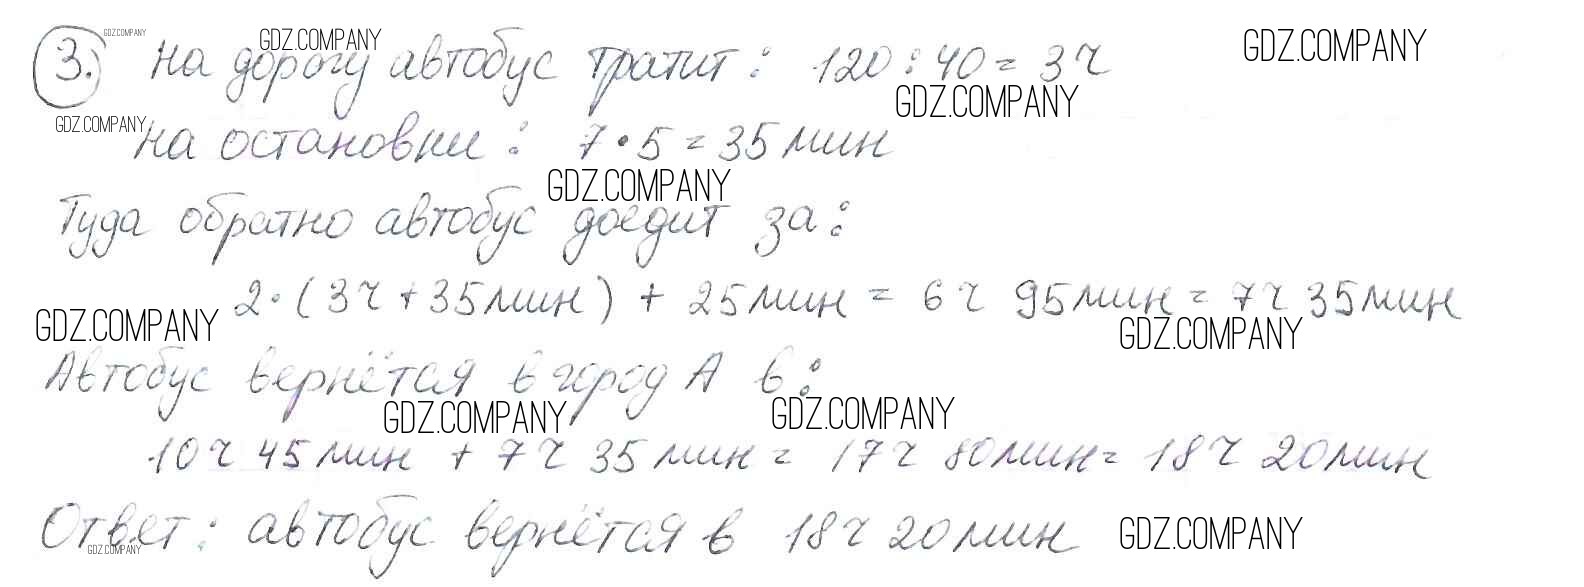 3. На дорогу автобус тратит: 120:40=3ч
На остановки: 7·5=35мин
Туда обратно автобус доедит за:
2·(3ч+35мин)+25мин=6ч 95мин=7ч 35мин
Автобус вернётся в город А в:
10ч 45мин + 7ч 35мин = 17ч 80мин= 18ч 20мин
Ответ: автобус вернётся в 18ч 20мин
GDZ.COMPANY
GDZ.COMPANY
GDZ.COMPANY
GDZ.COMPANY
GDZ.COMPANY
GDZ.COMPANY
GDZ.COMPANY
GDZ.COMPANY
GDZ.COMPANY
GDZ.COMPANY
GDZ.COMPANY
GDZ.COMPANY